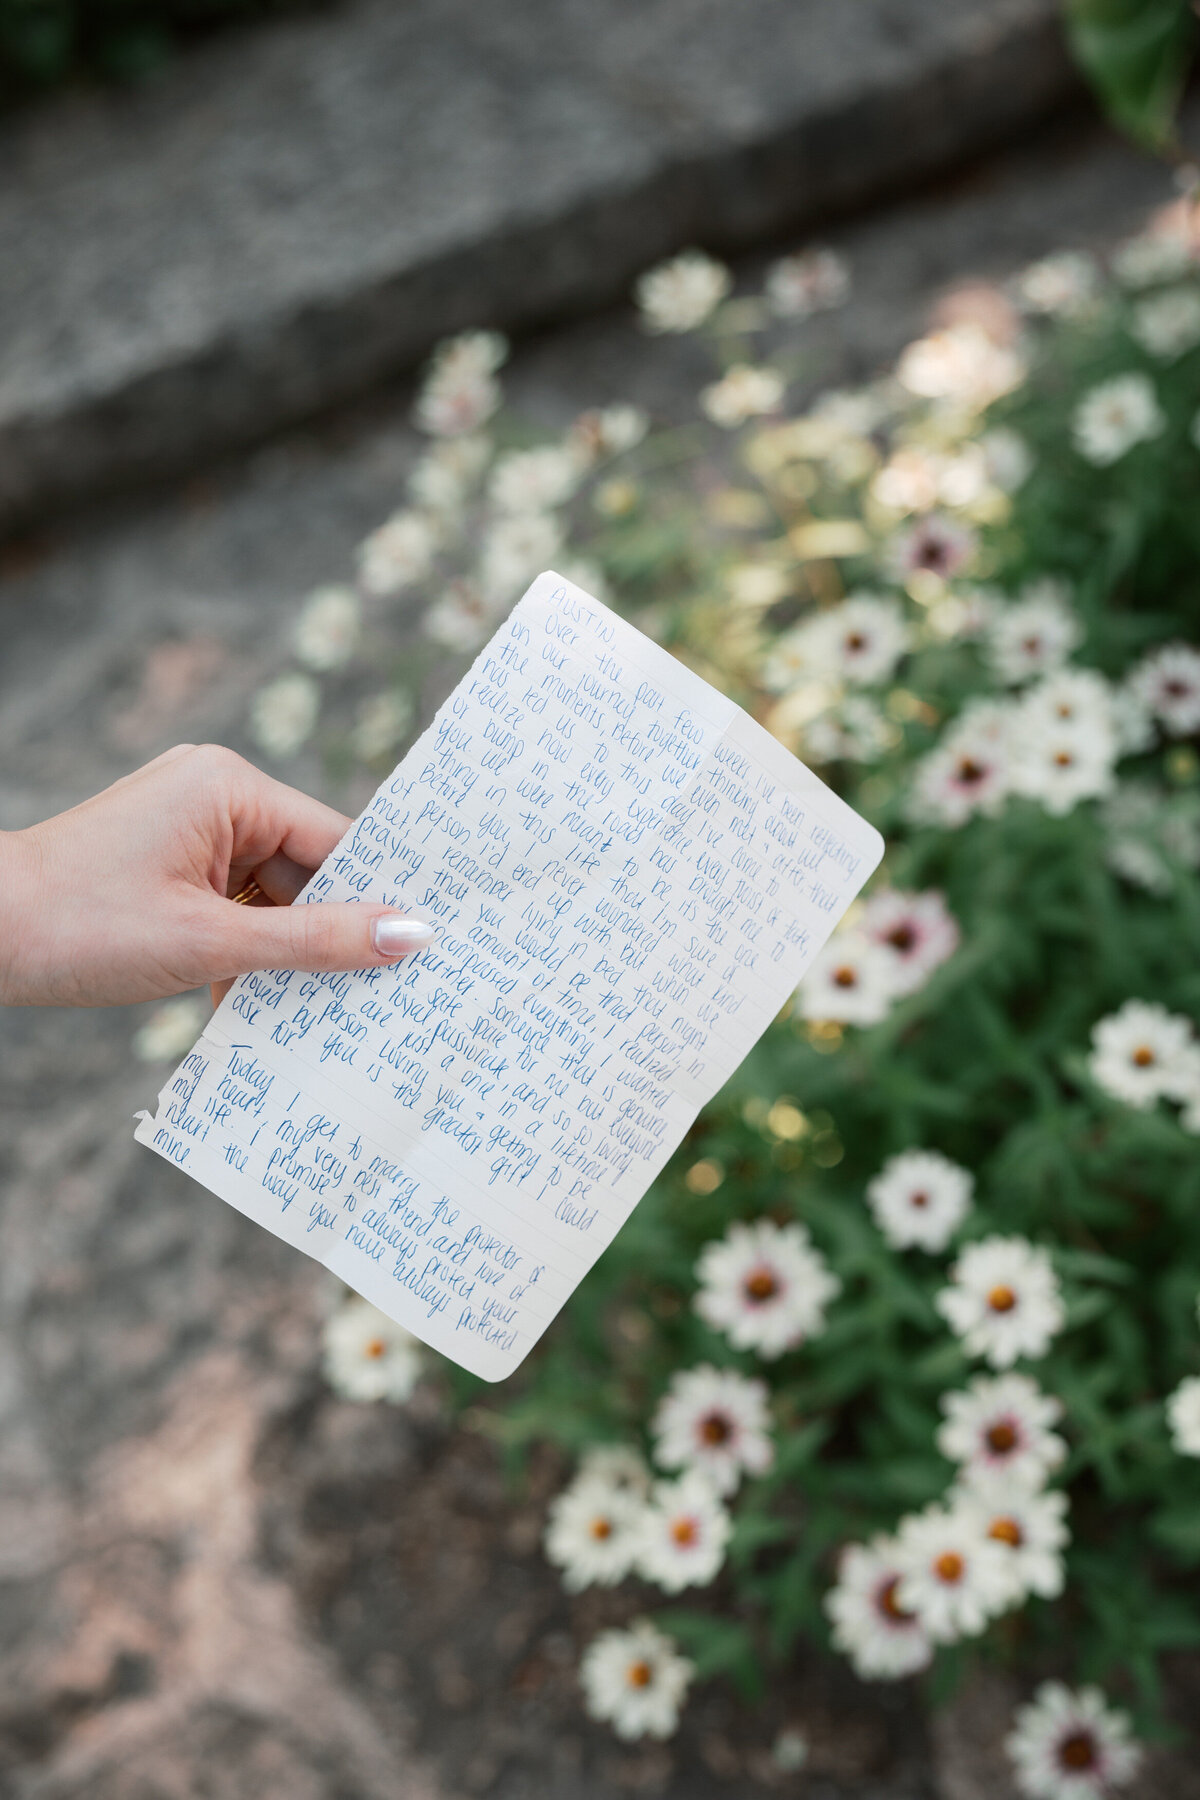 AUSTIN,
Over the past few weeks, I've been reflecting
on our journey together, thinking about all
the moments, before we even met & after, that
has led us to this day. I've come to
realize how every experience, every twist of fate,
or bump in the road has brought me to
you. We were meant to be, it's the one
thing in this life that I'm sure of.
Before you, I never wondered what kind
of person I'd end up with. But when we
met, I remember lying in bed that night
praying that you would be that person, in
such a short amount of time, I realized
that you encompassed everything I wanted
in partner. Someone that is genuine,
a safe space for me but everyone
life, loyal, passionate, and so so loving.
truly are just a once in a lifetime
kind of person. Loving you & getting to be
loved by you is the greatest gift I could
ask for.
Today I get to marry the protector of
my heart, my very best friend, and love of
my life. I promise to always protect your
heart the way you have always protected
mine.